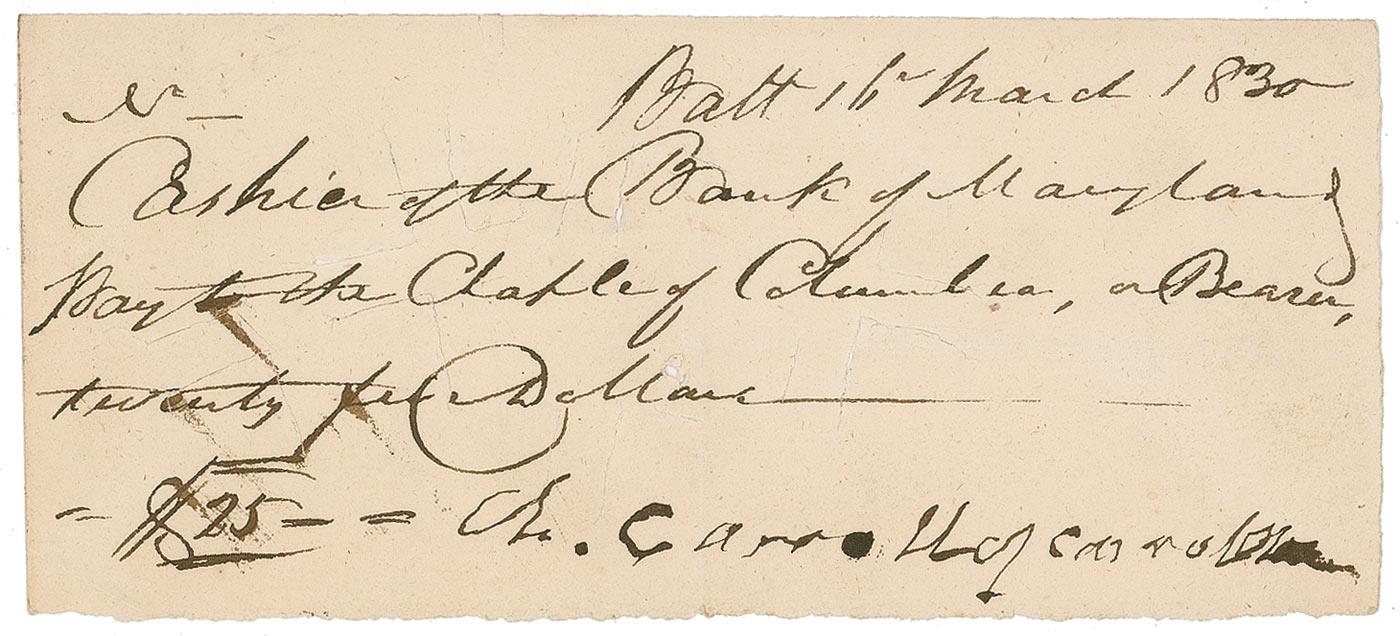 No — Balt 16 March 1830
Cashier of the Bank of Maryland
Pay to the Chaple of Columbia, or Bearer,
twenty five Dollars
= $25 = = Ch. Carroll of Carrollton